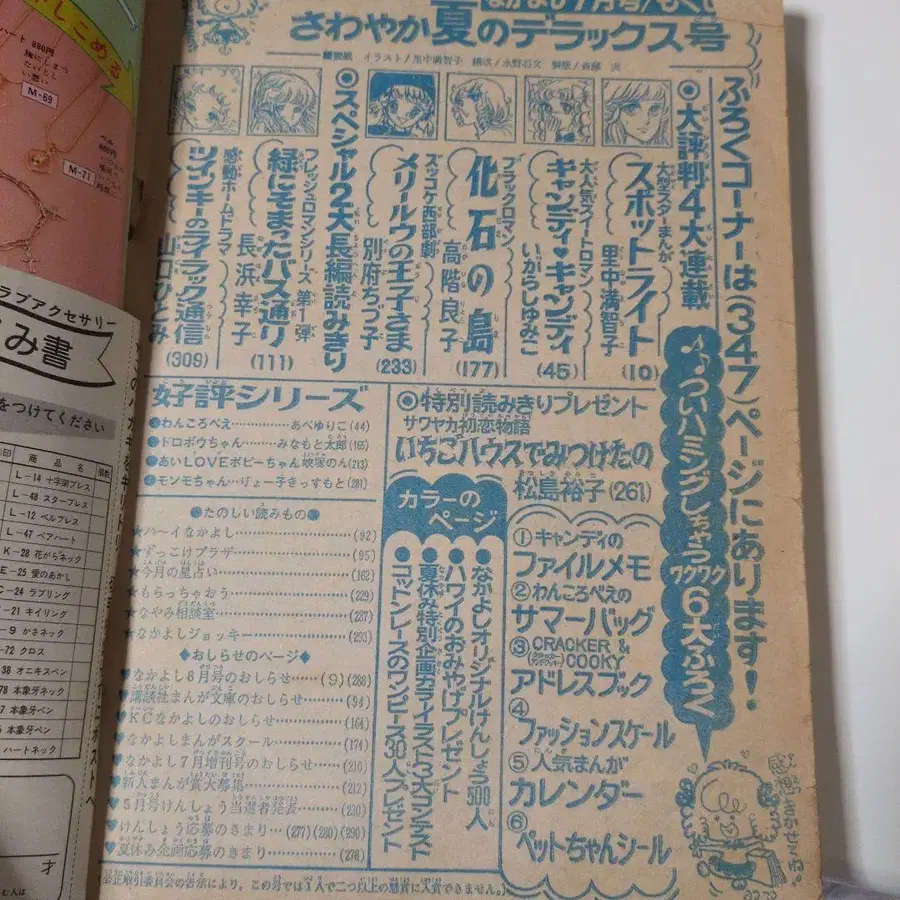 なかよし7月号/もくじ
さわやか夏のデラックス号
ふろくコーナーは(347)ページにあります!
◎大評判4大連載
大型スターまんが
スポットライト
里中満智子
(10)
大人気スイートロマン
キャンディ♥キャンディ
いがらしゆみこ
(45)
ブラックロマン
化石の島
高階良子
(177)
ズッコケ西部劇
メリールウの王子さま
別府ちづ子
(233)
◎スペシャル2大長編読みきり
フレッシュロマンシリーズ 第一弾
緑にそまったバス通り
長浜幸子
(111)
感動ホームドラマ
ツインキーのライラック通信
(309)
♪♪ついハミングしちゃうワクワク6大ふろく
①キャンディの
ファイルメモ
②わんころべえの
サマーバッグ
③CRACKER &
COOKY
アドレスブック
④
ファッションスケール
⑤人気まんが
カレンダー
⑥
ペットちゃんシール
◎特別読みきりプレゼント
サワヤカ初恋物語
いちごハウスでみつけたの
松島裕子(261)
カラーの
ページ
●なかよしオリジナルけんしょう500人
●ハワイのおみやげプレゼント
●夏休み特別企画カライラスト3大コンテスト
●コットンレースのワンピース30人プレゼント
好評シリーズ
●わんころべえ…………あべゆりこ(44)
●ドロボウちゃん………みなもと太郎(165)
●あいLOVEポピーちゃん 映塚のん(213)
●モンモちゃん…りょー子きっすもと(281)
●たのしい読みもの●
★ハーイなかよし(92)
★ずっこけプラザ(95)
★今月の星占い(162)
★もらっちゃおう(229)
★なやみ相談室(287)
★なかよしジョッキー(293)
◆おしらせのページ◆
♥なかよし8月号のおしらせ……(9)(288)
♥講談社まんが文庫のおしらせ……(94)
♥KCなかよしのおしらせ(164)
♥なかよしまんがスクール(174)
♥なかよし7月増刊号のおしらせ……(210)
♥新人まんが賞大募集(212)
♥5月号けんしょう当選者発表(230)
♥けんしょう応募のきまり…(277)(280)(290)
♥夏休み企画応募のきまり(276)
公正取引委員会の告示により、この号では1人で二つ以上の懸賞に入賞できません。
ハート 880円
胸にしまっ
M-69
ベル
M-71
ラブアクセサリー
み書
をつけてください
印
商品名
個数
L-14 十字架ブレス
L-48 スターブレス
L-12 ベルブレス
L-47 ペアハート
K-28 花がらネック
E-25 愛のあかし
C-24 ラブリング
-21 キイリング
-9 かさネック
-72 クロス
38 オニキスペン
78 本象牙ネック
7 本象牙ペン
本象牙ペン
ハートネック
才